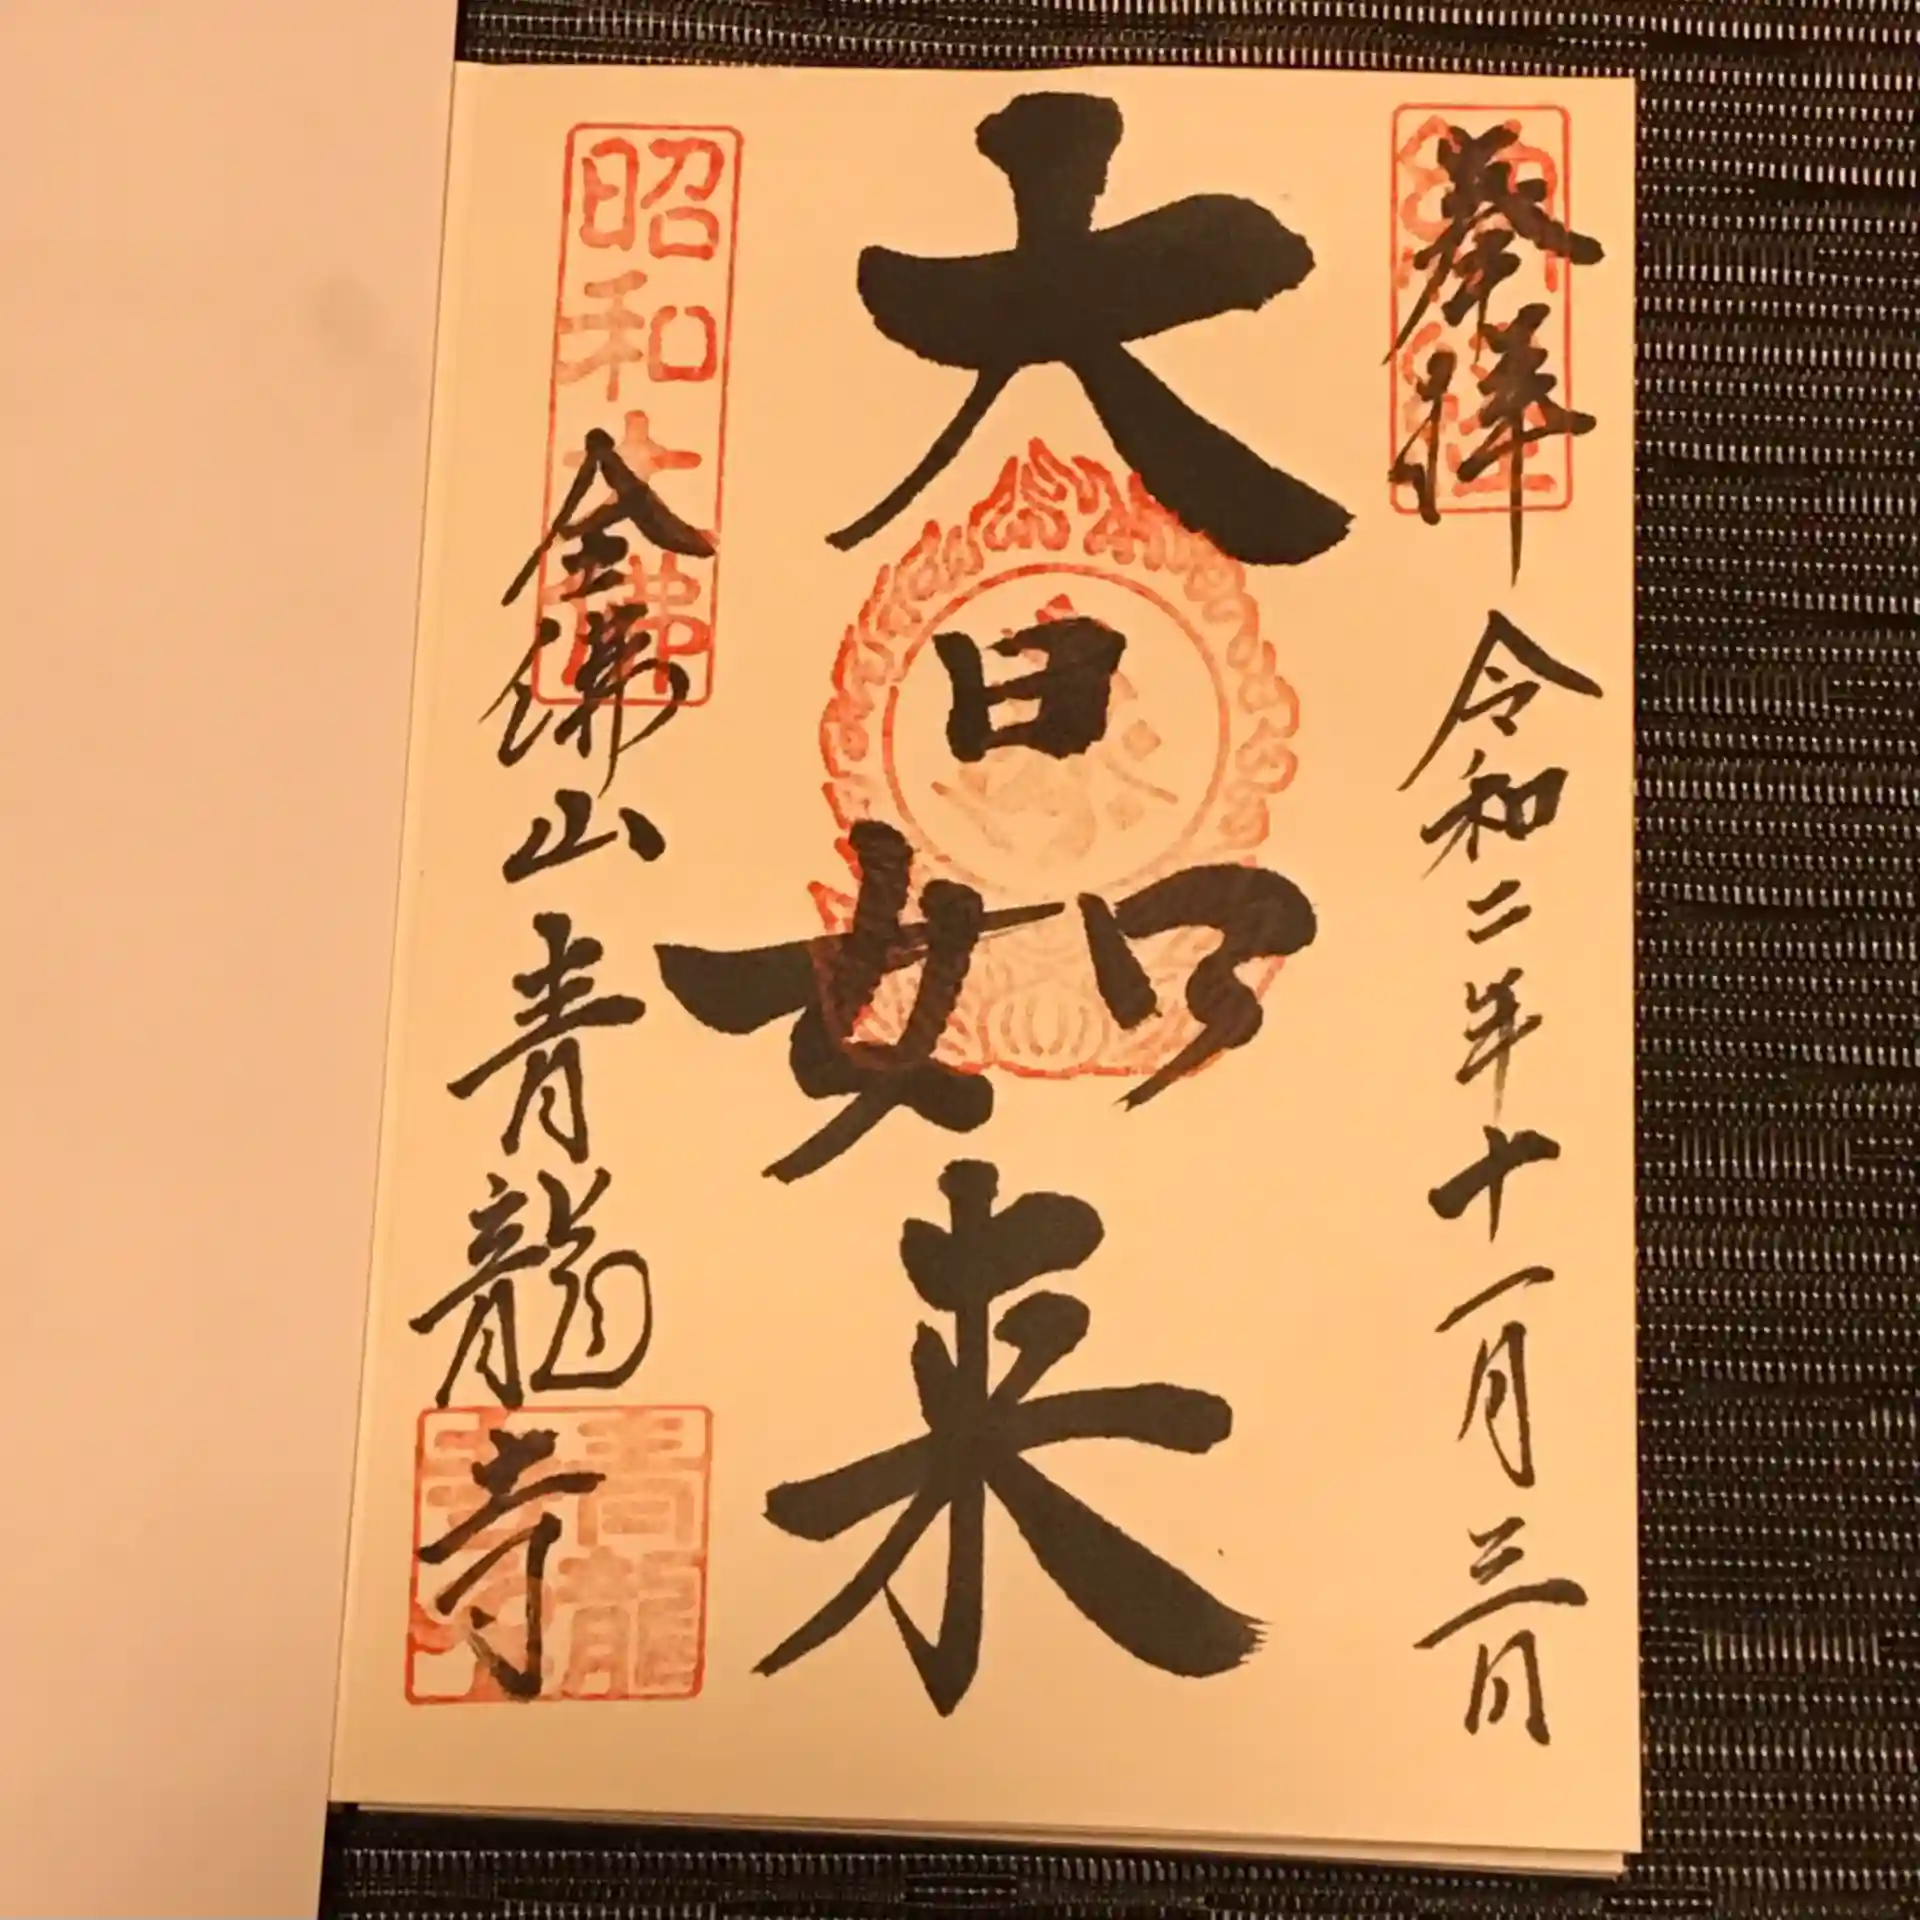 奉拝
令和二年十一月三日
大日如来
昭和大佛
金佛山青龍寺
青龍寺